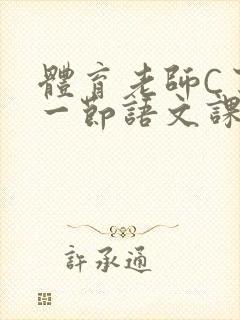 體育老師C
一節語文課
許承通